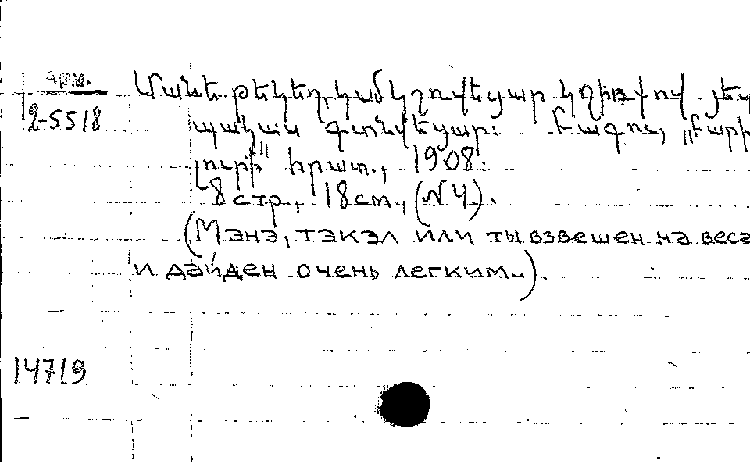 Арм.
2-5518
Մանե, թեկեղ, կամ կշռվեցար կշիռքով յես
պակաս գտնվեցար: Բագու, „Բարի
լուրի" հրատ., 1908.
8 стр., 18 см, (№ 4).
(Мэнэ, тэкэл или ты взвешен на веса
и дайден очень легким..).
14719